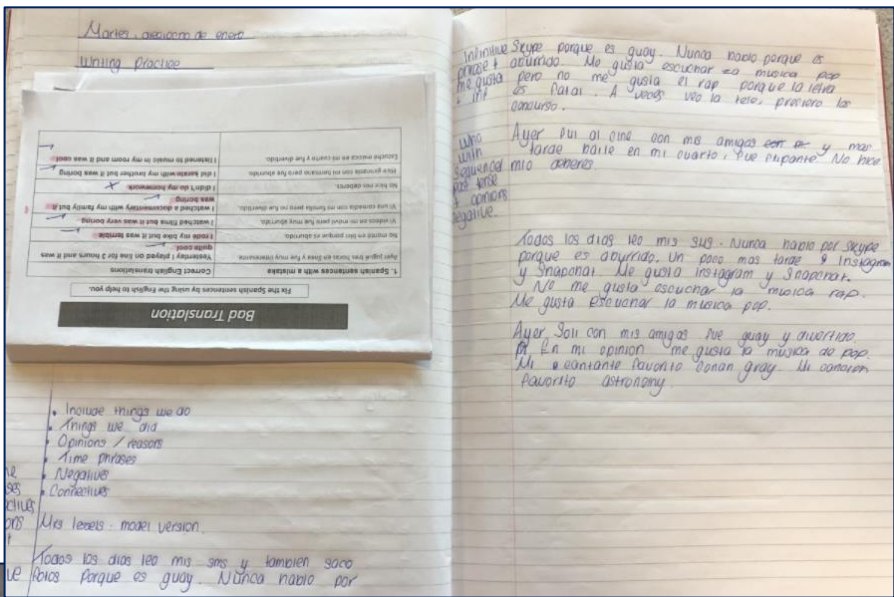 Martes, dieciocho de enero
Writing Practice
Bad Translation
Fix the Spanish sentences by using the English to help you.
1. Spanish sentences with a mistake
Correct English translations
Ayer jugué tres horas en línea y fue muy interesante
Yesterday I played on line for 2 hours and it was quite cool
No monté en bici porque es aburrido.
I rode my bike but it was terrible
Vi videos en mi móvil pero fue muy aburrido.
I watched films but it was very boring
Vi una comedia con mi familia pero no fue divertido.
I watched a documentary with my family but it was boring
No hice mis deberes.
I didn't do my homework
Hice gimnasia con mi hermano pero fue aburrido.
I did karate with my brother but it was boring
Escuché música en mi cuarto y fue divertido.
I listened to music in my room and it was cool
• Include things we do
• Things we did
• Opinions / reasons
• Time phrases
• Negatives
• Connectives
Mrs model version.
Todos los dias leo mis sms y tambien saco
fotos porque es guay. Nunca hablo por
Infinitive
phrase +
me gusta
+ inf
Skype porque es guay. Nunca hablo porque es
aburrido. Me gusta escuchar la musica pop
pero no me gusta el rap porque la letra
es fatal. A veces veo la tele, prefiero los
concurso.
Who
with
Sequencer
past tense
+ opinions
negative.
Ayer fui al cine con mis amigos y mas
tarde baile en mi cuarto, fue flipante. No hice
mio deberes.
Todos los dias leo mis sms. Nunca hablo por Skype
porque es aburrido. Un poco mas tarde Instagram
y Snapchat. Me gusta instagram y Snapchat.
No me gusta escuchar la musica rap.
Me gusta escuchar la musica pop.
Ayer, Sali con mis amigas fue guay y divertido.
En mi opinion me gusta la musica de pop.
Mi cantante favorito Conan gray. Mi cancion
favorito astronomy.